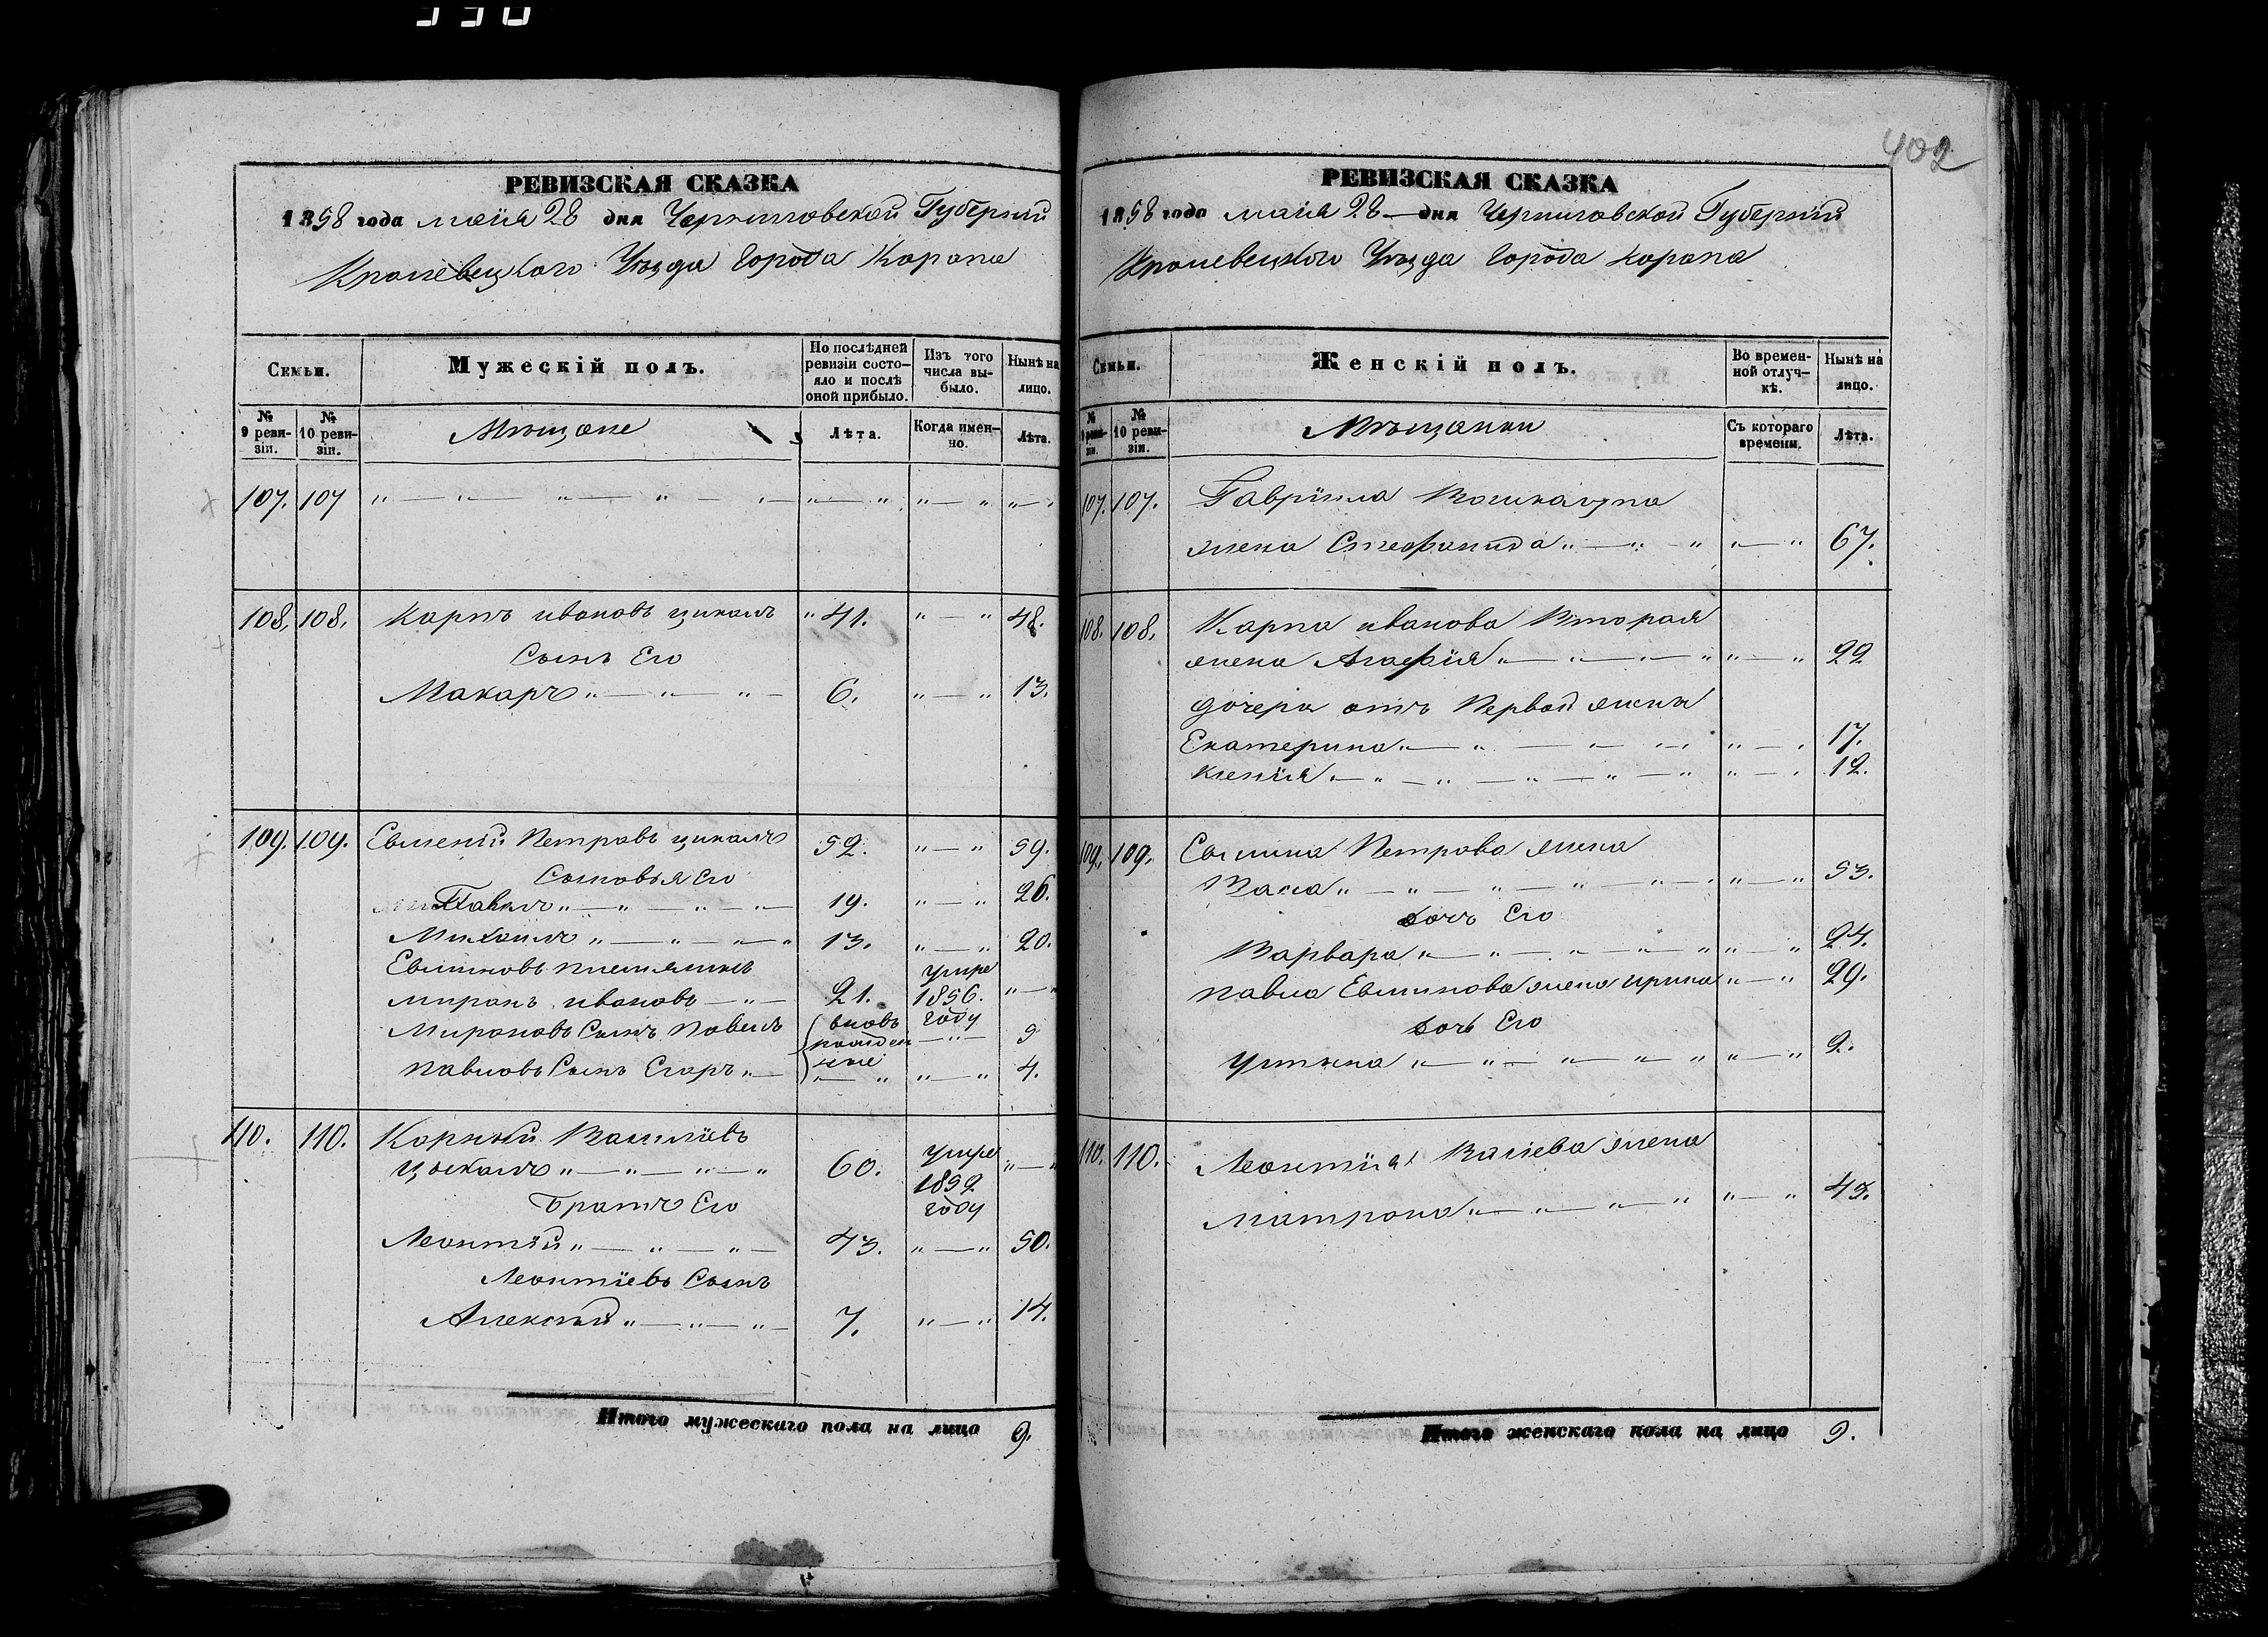 402
РЕВИЗСКАЯ СКАЗКА
1858 года маія 28 дня Черниговской Губерніи
Кролевецкого Уѣзда Города Коропа
Семьи.
Мужескій полъ.
По послѣдней ревизіи состояло и послѣ оной прибыло.
Изъ того числа выбыло.
Нынѣ на лицо.
№ 9 ревизіи.
№ 10 ревизіи.
Мѣщане
Лѣта.
Когда именно.
Лѣта.
107. 107 „ — „ — „ — „ — „ — „ — „ „ — „ „ — „
108. 108. Карпъ ивановъ цикалъ „ 41. „ — „ 48.
Сынъ Его
Макаръ „ — „ — „ — 6. „ — „ 13.
109. 109. Евменій Петровъ цикалъ 52. „ — „ 59.
Сыновья Его
Павелъ „ — „ — „ — „ — 19. „ — „ 26.
Михаилъ „ — „ — „ — „ 13. „ — „ 20.
племянникъ
миронъ ивановъ — „ — 21. умре 1856. году „ — „
Мироновъ Сынъ Павелъ вновь рожденные — „ — 9
павловъ Сынъ Егоръ „ — „ — „ „ — „ 4.
110. 110. Корній Василіевъ
цыкалъ „ — „ — „ — „ 60. умре 1852 году „ — „
Братъ Его
Леонтій „ — „ — „ — 43. „ — „ 50.
Леонтіевъ Сынъ
Алексѣй „ — „ — „ — 7. „ — „ 14.
Итого мужескаго пола на лицо 9.
РЕВИЗСКАЯ СКАЗКА
1858 года маія 28 — дня Черниговской Губерніи
Кролевецкого Уѣзда Города Коропа
Семьи.
Женскій полъ.
Во временной отлучкѣ.
Нынѣ на лицо.
№ 9 ревизіи.
№ 10 ревизіи.
Мѣщанки
Съ котораго времени.
Лѣта.
107. 107. Гавріила
жена Стефанида „ — „ — „ „ — „ 67.
108. 108. Карпа иванова Вторая
жена Агафія „ — „ — „ — „ „ — „ 22
дочери отъ Первой жены
Екатерина „ — „ — „ — „ „ — „ 17.
ксенія „ — „ — „ — „ — „ — „ „ — „ 12.
109. 109. Петрова жена
Васса „ — „ — „ — „ — „ — „ „ — „ 53.
дочь Его
Варвара „ — „ — „ — „ — „ „ — „ 24.
павла жена ирина „ — „ 29.
дочь Его
Устина „ — „ — „ — „ — „ „ — „ 2.
110. 110. Леонтія жена
Матрона „ — „ — „ — „ „ — „ 45.
Итого женскаго пола на лицо 9.